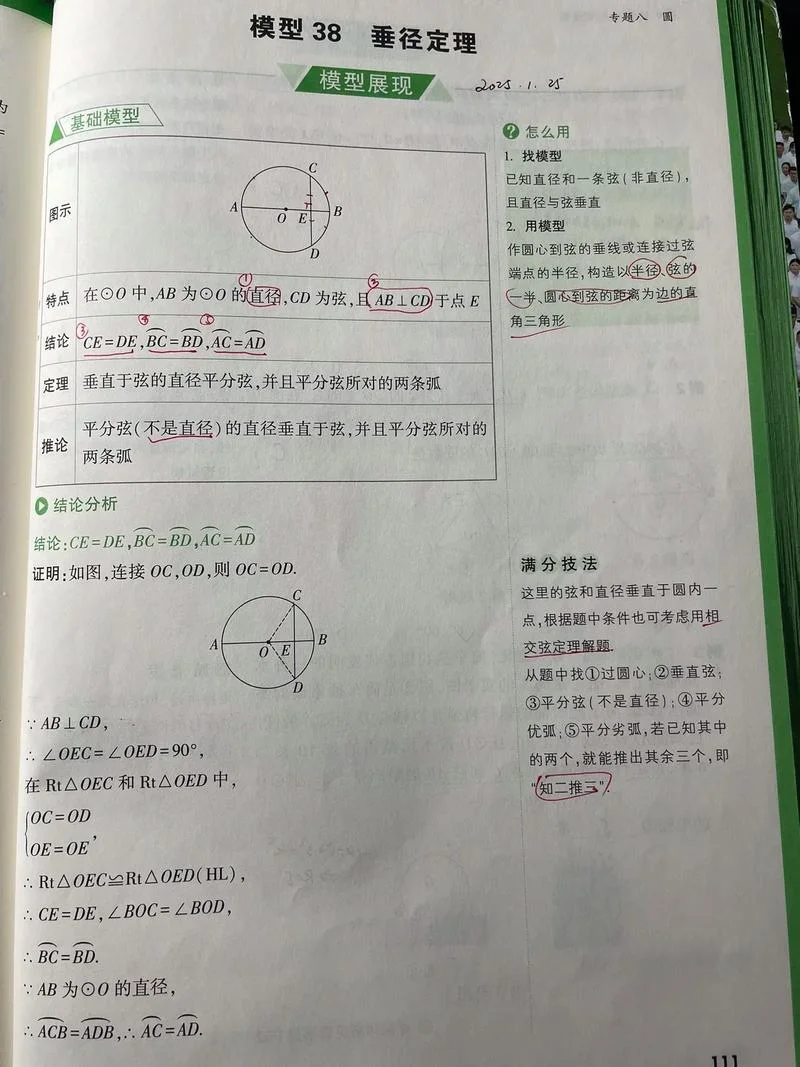 专题八 圆
模型 38 垂径定理
模型展现
2025.1.25
基础模型
图示
A
B
C
D
O
E
特点
①
③
在⊙O 中,AB 为⊙O 的直径,CD 为弦,且 AB⊥CD 于点 E
结论
③
④
CE=DE,BC⌒=BD⌒,AC⌒=AD⌒
定理
垂直于弦的直径平分弦,并且平分弦所对的两条弧
推论
平分弦(不是直径)的直径垂直于弦,并且平分弦所对的
两条弧
结论分析
结论:CE=DE,BC⌒=BD⌒,AC⌒=AD⌒
证明:如图,连接 OC,OD,则 OC=OD.
C
A
O
E
B
D
∵ AB⊥CD,
∴ ∠OEC=∠OED=90°,
在 Rt△OEC 和 Rt△OED 中,
OC=OD
OE=OE,
∴ Rt△OEC≌Rt△OED(HL),
∴ CE=DE,∠BOC=∠BOD,
∴ BC⌒=BD⌒.
∵ AB 为⊙O 的直径,
∴ ACB⌒=ADB⌒,∴ AC⌒=AD⌒.
? 怎么用
1. 找模型
已知直径和一条弦(非直径),
且直径与弦垂直
2. 用模型
作圆心到弦的垂线或连接过弦
端点的半径,构造以半径、弦的
一半、圆心到弦的距离为边的直
角三角形
满分技法
这里的弦和直径垂直于圆内一
点,根据题中条件也可考虑用相
交弦定理解题.
从题中找①过圆心;②垂直弦;
③平分弦(不是直径);④平分
优弧;⑤平分劣弧,若已知其中
的两个,就能推出其余三个,即
“知二推三”.
111